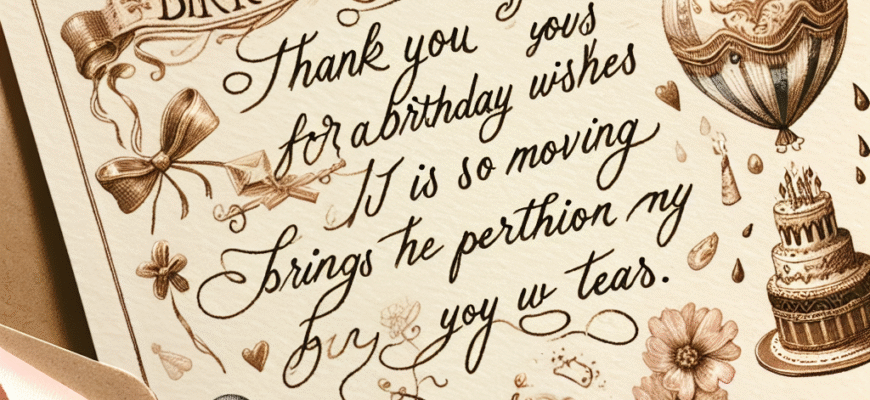 Thank you yous
for a birthday wishes
IJ is so moving
brings he perthion my
yoy w teas.